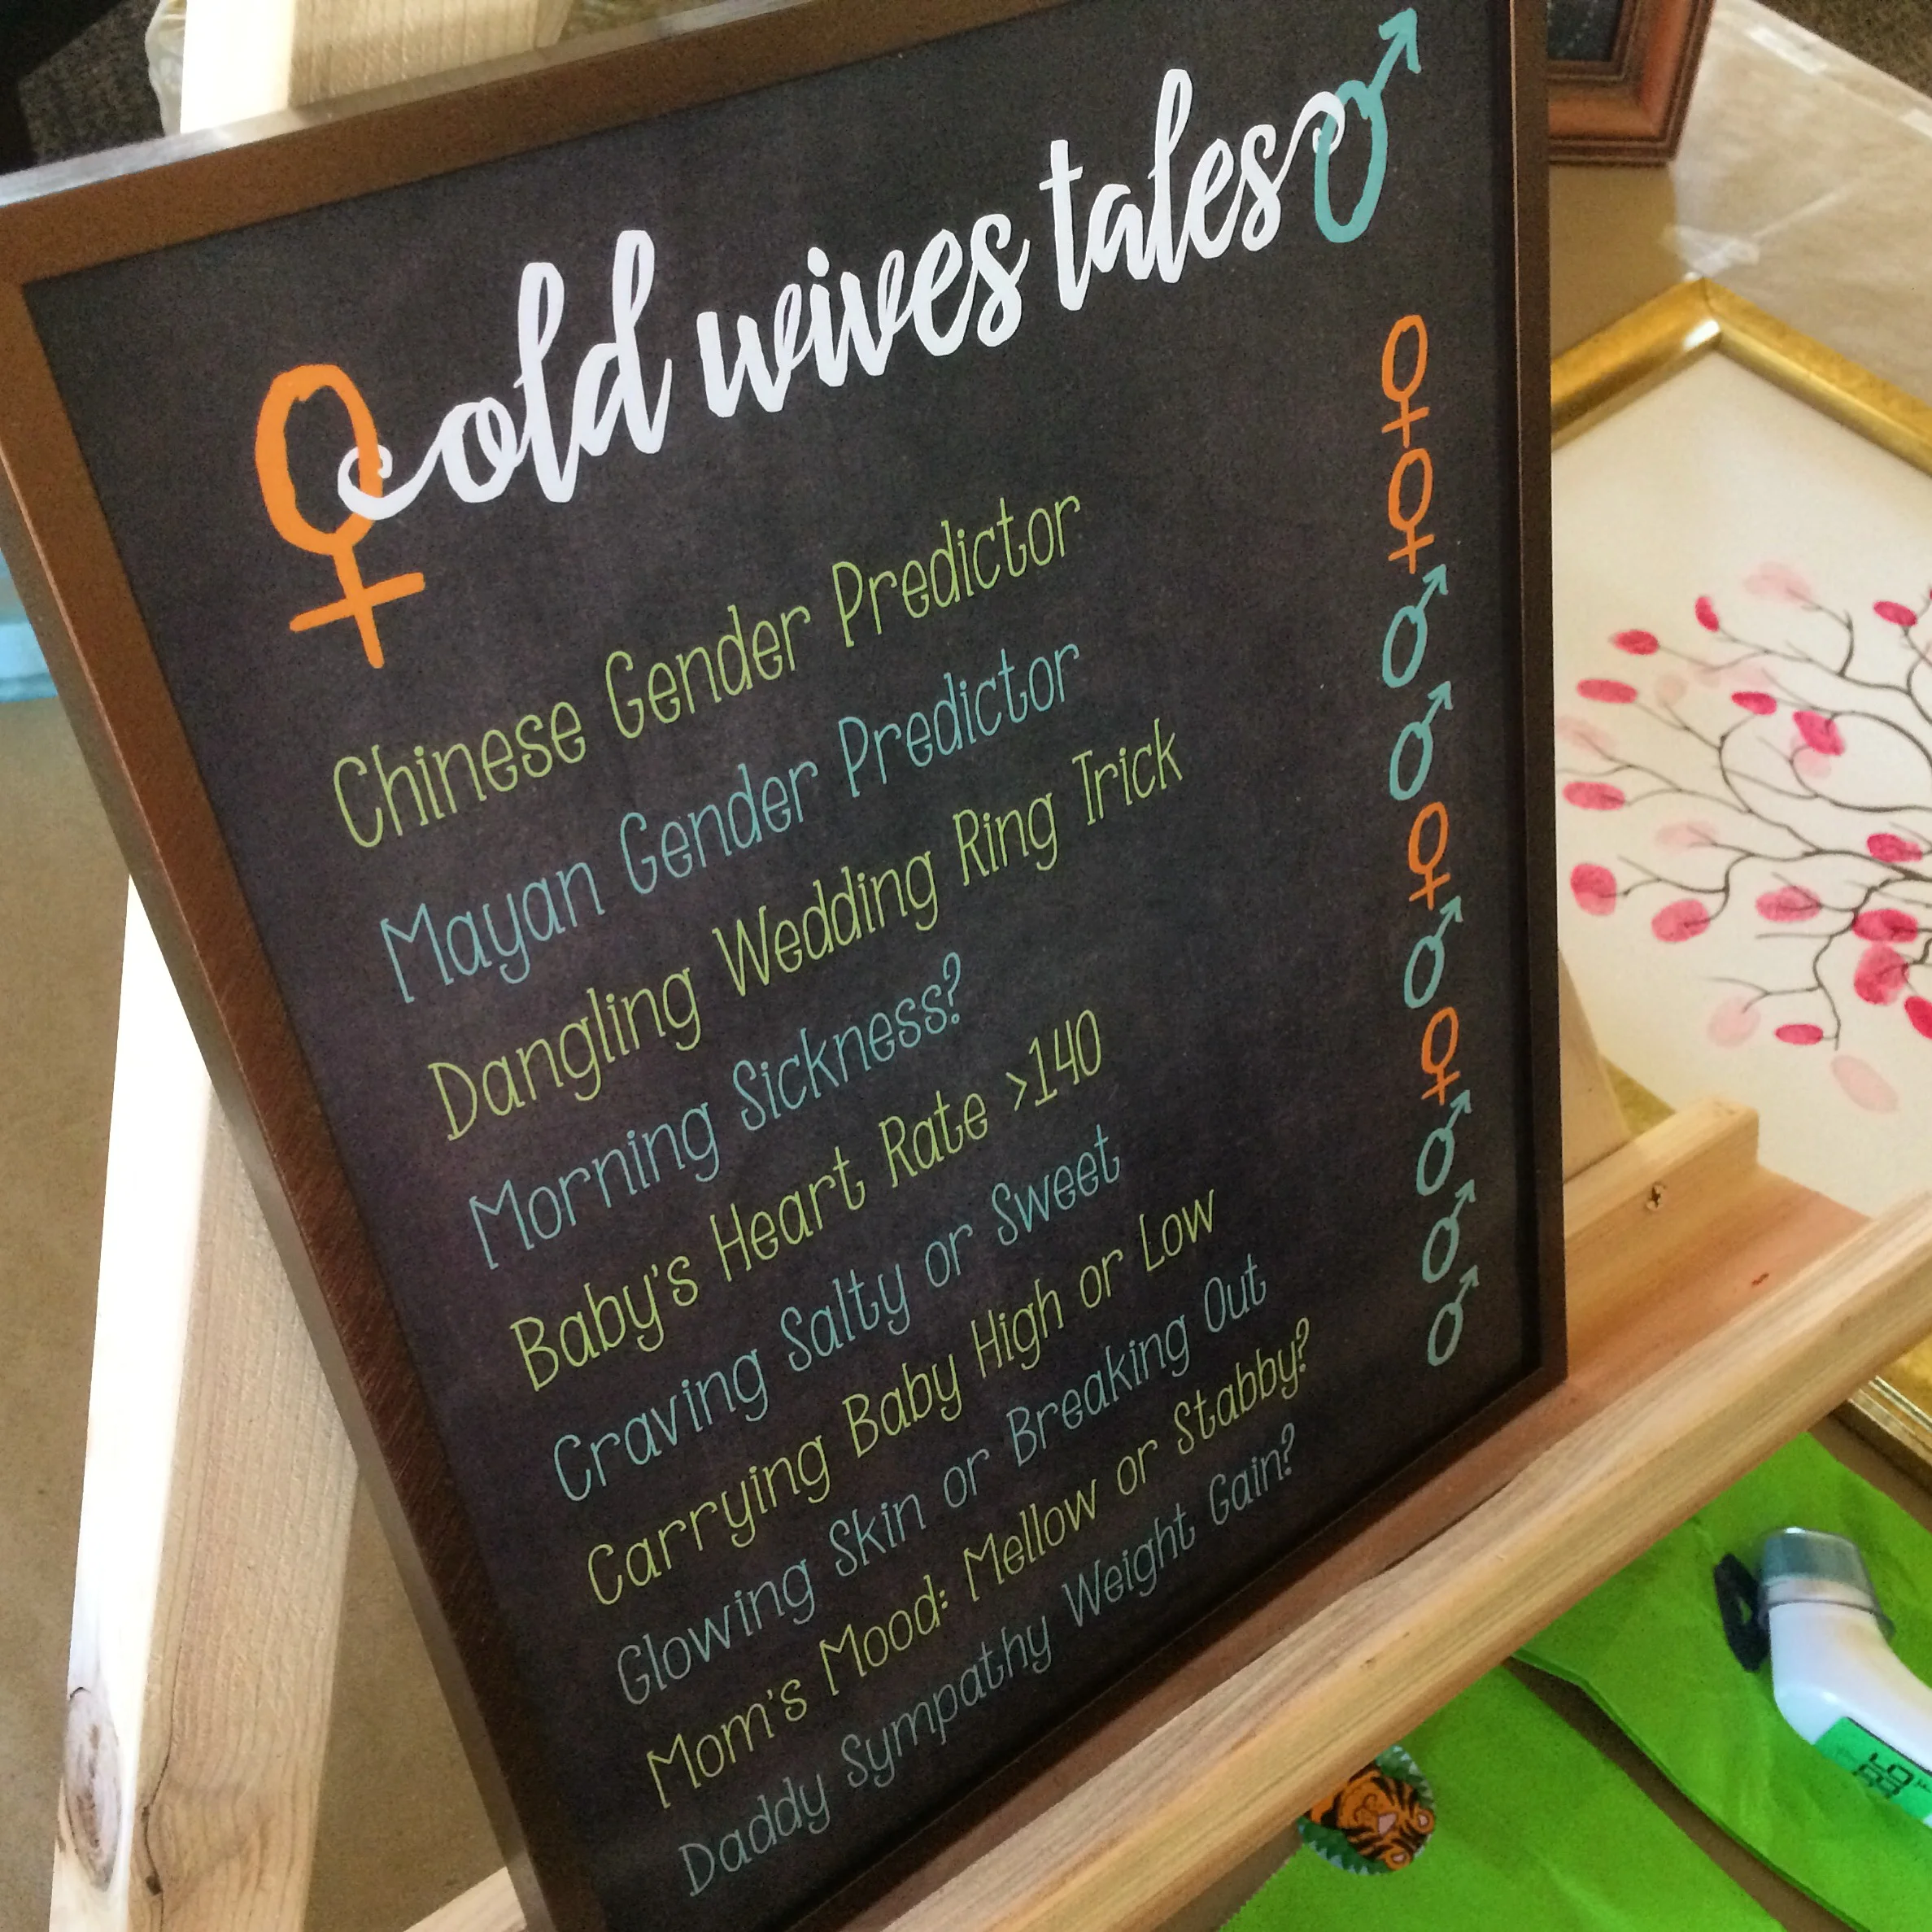 old wives tales
Chinese Gender Predictor
Mayan Gender Predictor
Dangling Wedding Ring Trick
Morning Sickness?
Baby's Heart Rate >140
Craving Salty or Sweet
Carrying Baby High or Low
Glowing Skin or Breaking Out
Mom's Mood: Mellow or Stabby?
Daddy Sympathy Weight Gain?